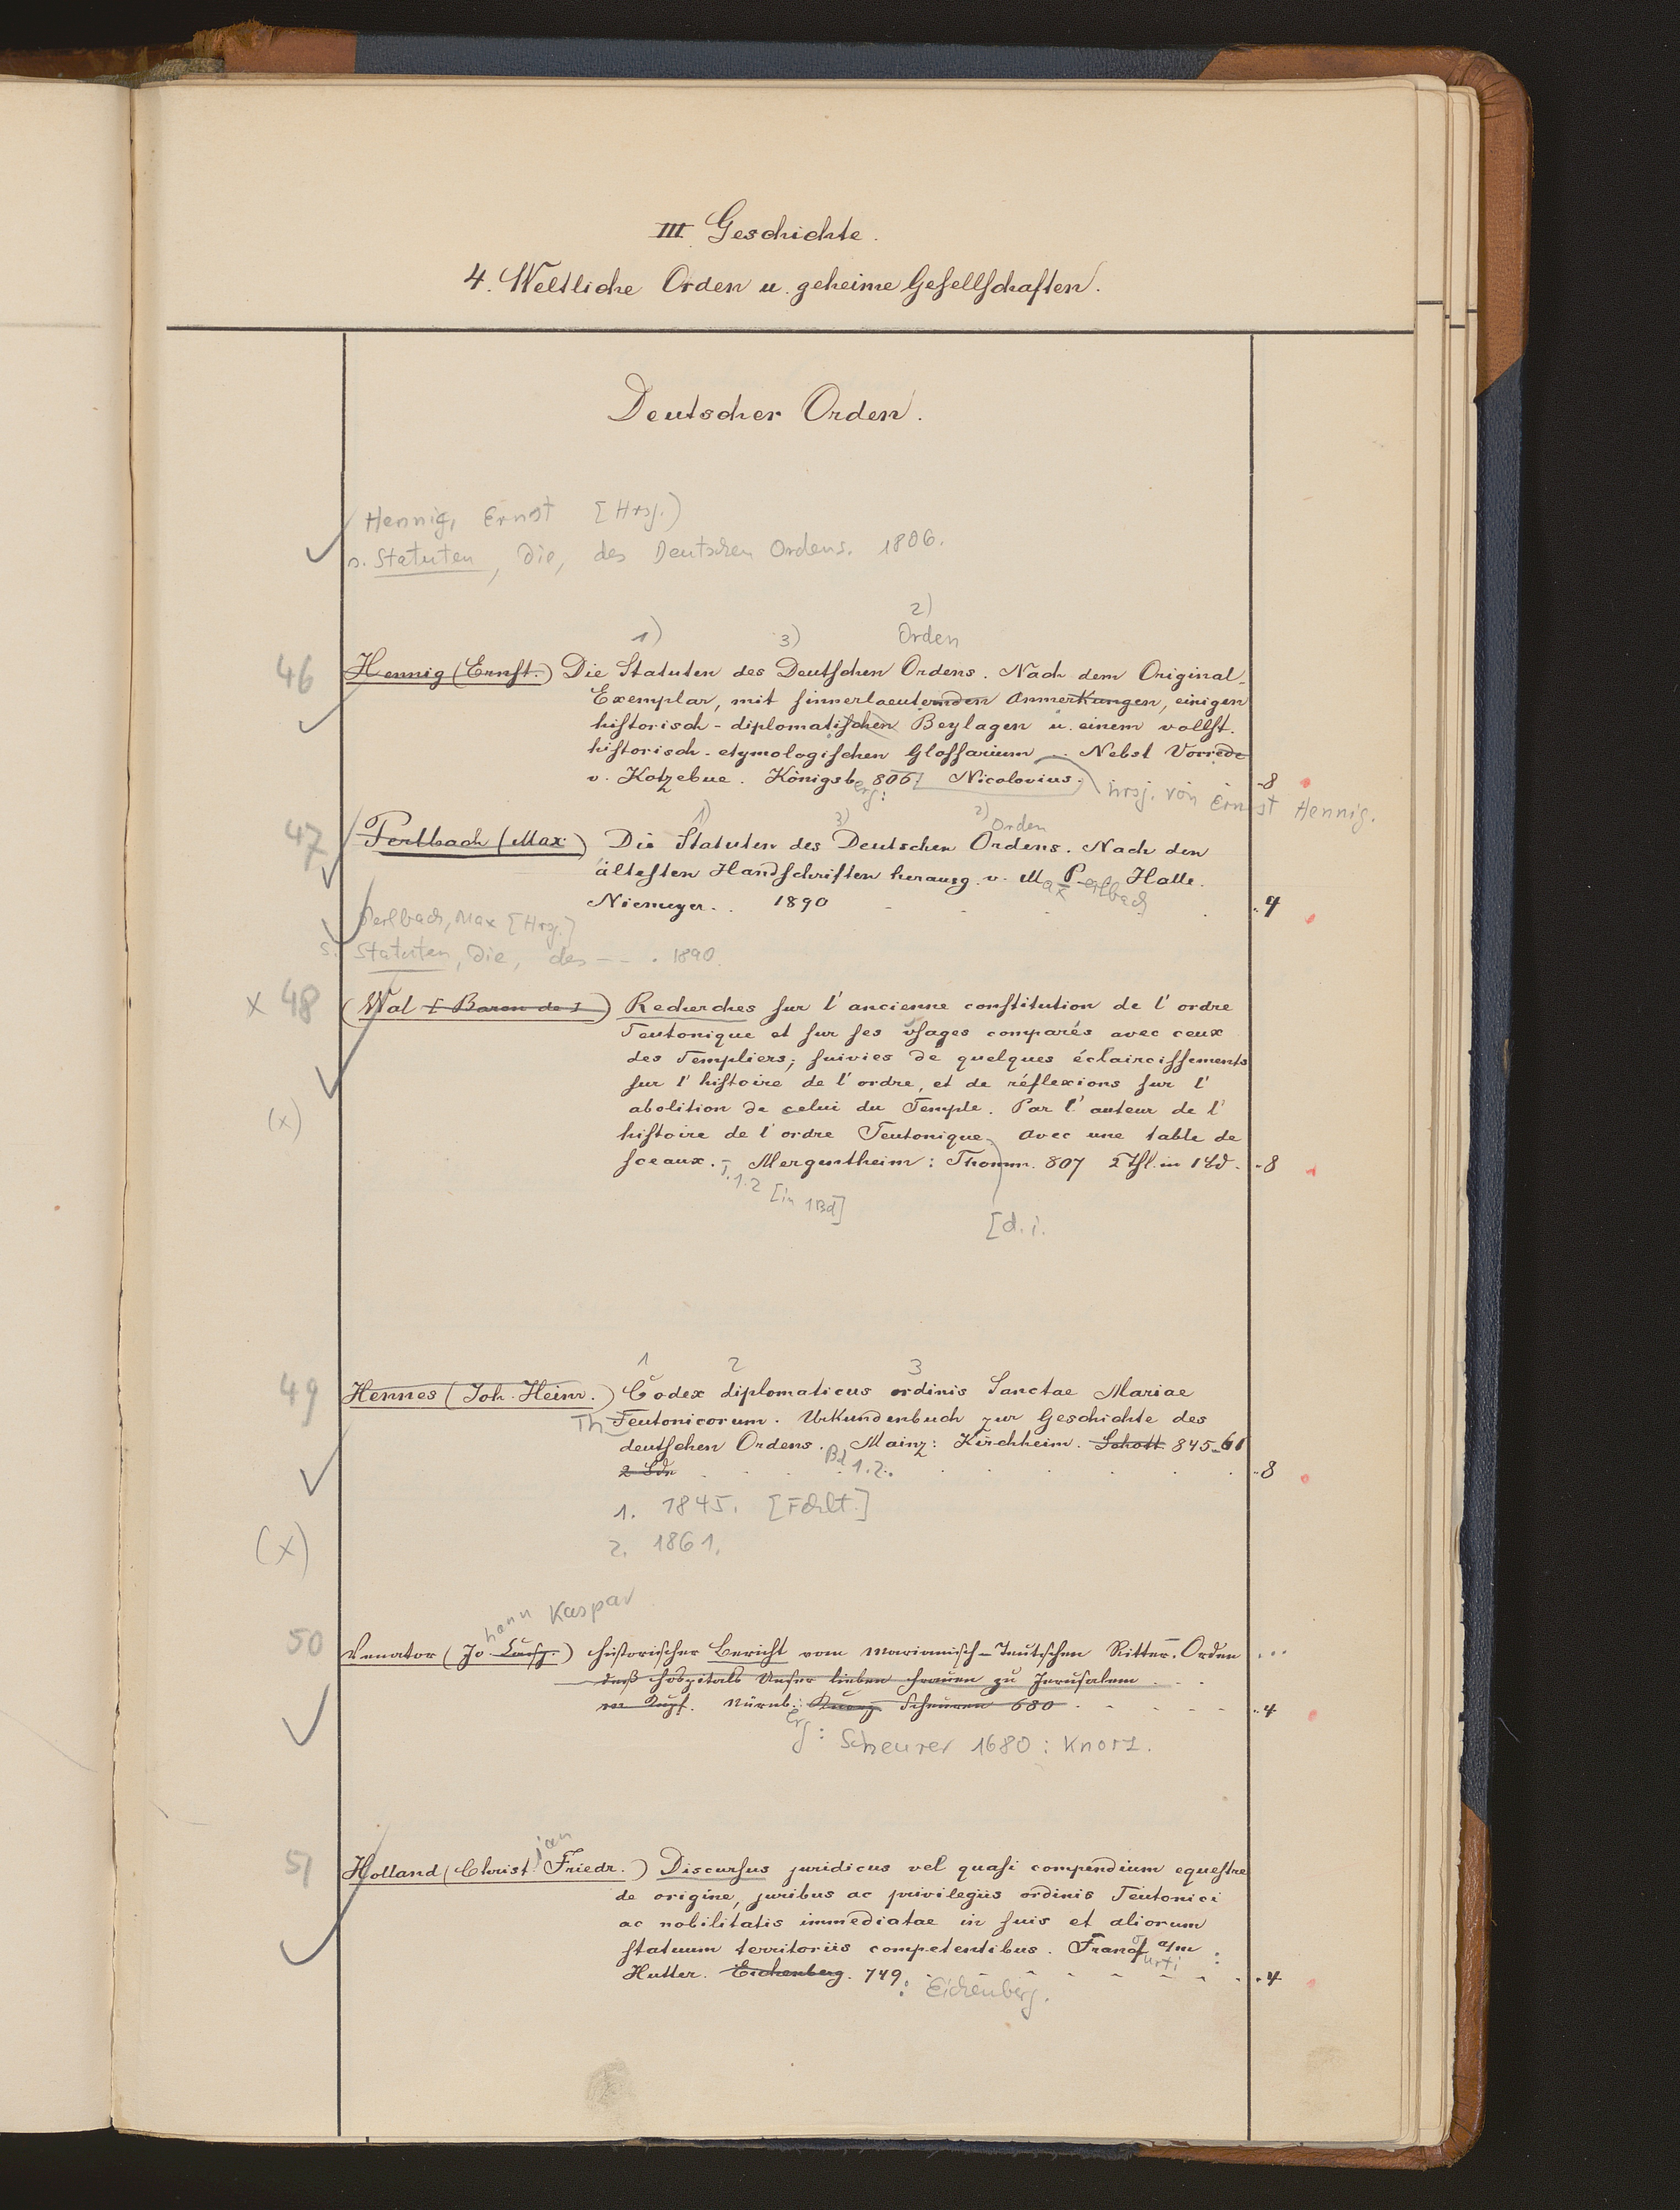 III. Geschichte.
4. Weltliche Orden u. geheime Gesellschaften.
Deutscher Orden.
Hennig, Ernst [Hrsg.)
s. Statuten, Die, des Deutschen Ordens. 1806.
1) 3) 2) Orden
46 Hennig (Ernst.) Die Statuten des Deutschen Ordens. Nach dem Original-
Exemplar, mit sinnerlaeuternden Anmerkungen, einigen
historisch-diplomatischen Beylagen u. einem vollst.
historisch-etymologischen Glossarium. Nebst Vorrede
v. Kotzebue. Königsberg: 806 Nicolovius. hrsg. von Ernst Hennig. 8
1) 3) 2) Orden
47 Perlbach (Max) Die Statuten des Deutschen Ordens. Nach den
ältesten Handschriften herausg. v. Max Perlbach Halle.
Niemeyer. 1890 4
Perlbach, Max [Hrsg.]
s. Statuten, Die, des - - . 1890.
x 48 (Wal [Baron de]) Recherches sur l'ancienne constitution de l'ordre
Teutonique et sur ses usages comparés avec ceux
des Templiers; suivies de quelques éclaircissements
sur l'histoire de l'ordre, et de réflexions sur l'
abolition de celui du Temple. Par l'auteur de l'
(x)
histoire de l'ordre Teutonique. Avec une table de
sceaux. Mergentheim: Thomm. 807 2 Thl. in 1 Bd. 8
1.2 [in 1 Bd]
[d. i.
1 2 3
49 Hennes (Joh. Heinr.) Codex diplomaticus ordinis Sanctae Mariae
Th Teutonicorum. Urkundenbuch zur Geschichte des
deutschen Ordens. Mainz: Kirchheim. Schott 845-61
2 Bde Bd 1.2. 8
1. 1845. [Fehlt.]
2. 1861.
(x)
hann Kaspar
50 Venator (Jo. Casp.) historischer Bericht vom Marianisch-Teutschen Ritter-Orden
deß Hospitals Unser lieben Frauen zu Jerusalem
m. Kupf. Nürnb.: Knorz Scheuren 680 4
erg: Scheurer 1680: Knorz.
51 Holland (Christian Friedr.) Discursus juridicus vel quasi compendium equestre
de origine, juribus ac privilegiis ordinis Teutonici
ac nobilitatis immediatae in suis et aliorum
statuum territoriis competentibus. Francofurti a/m:
Hutter. Eichenberg. 749: Eichenberg. 4